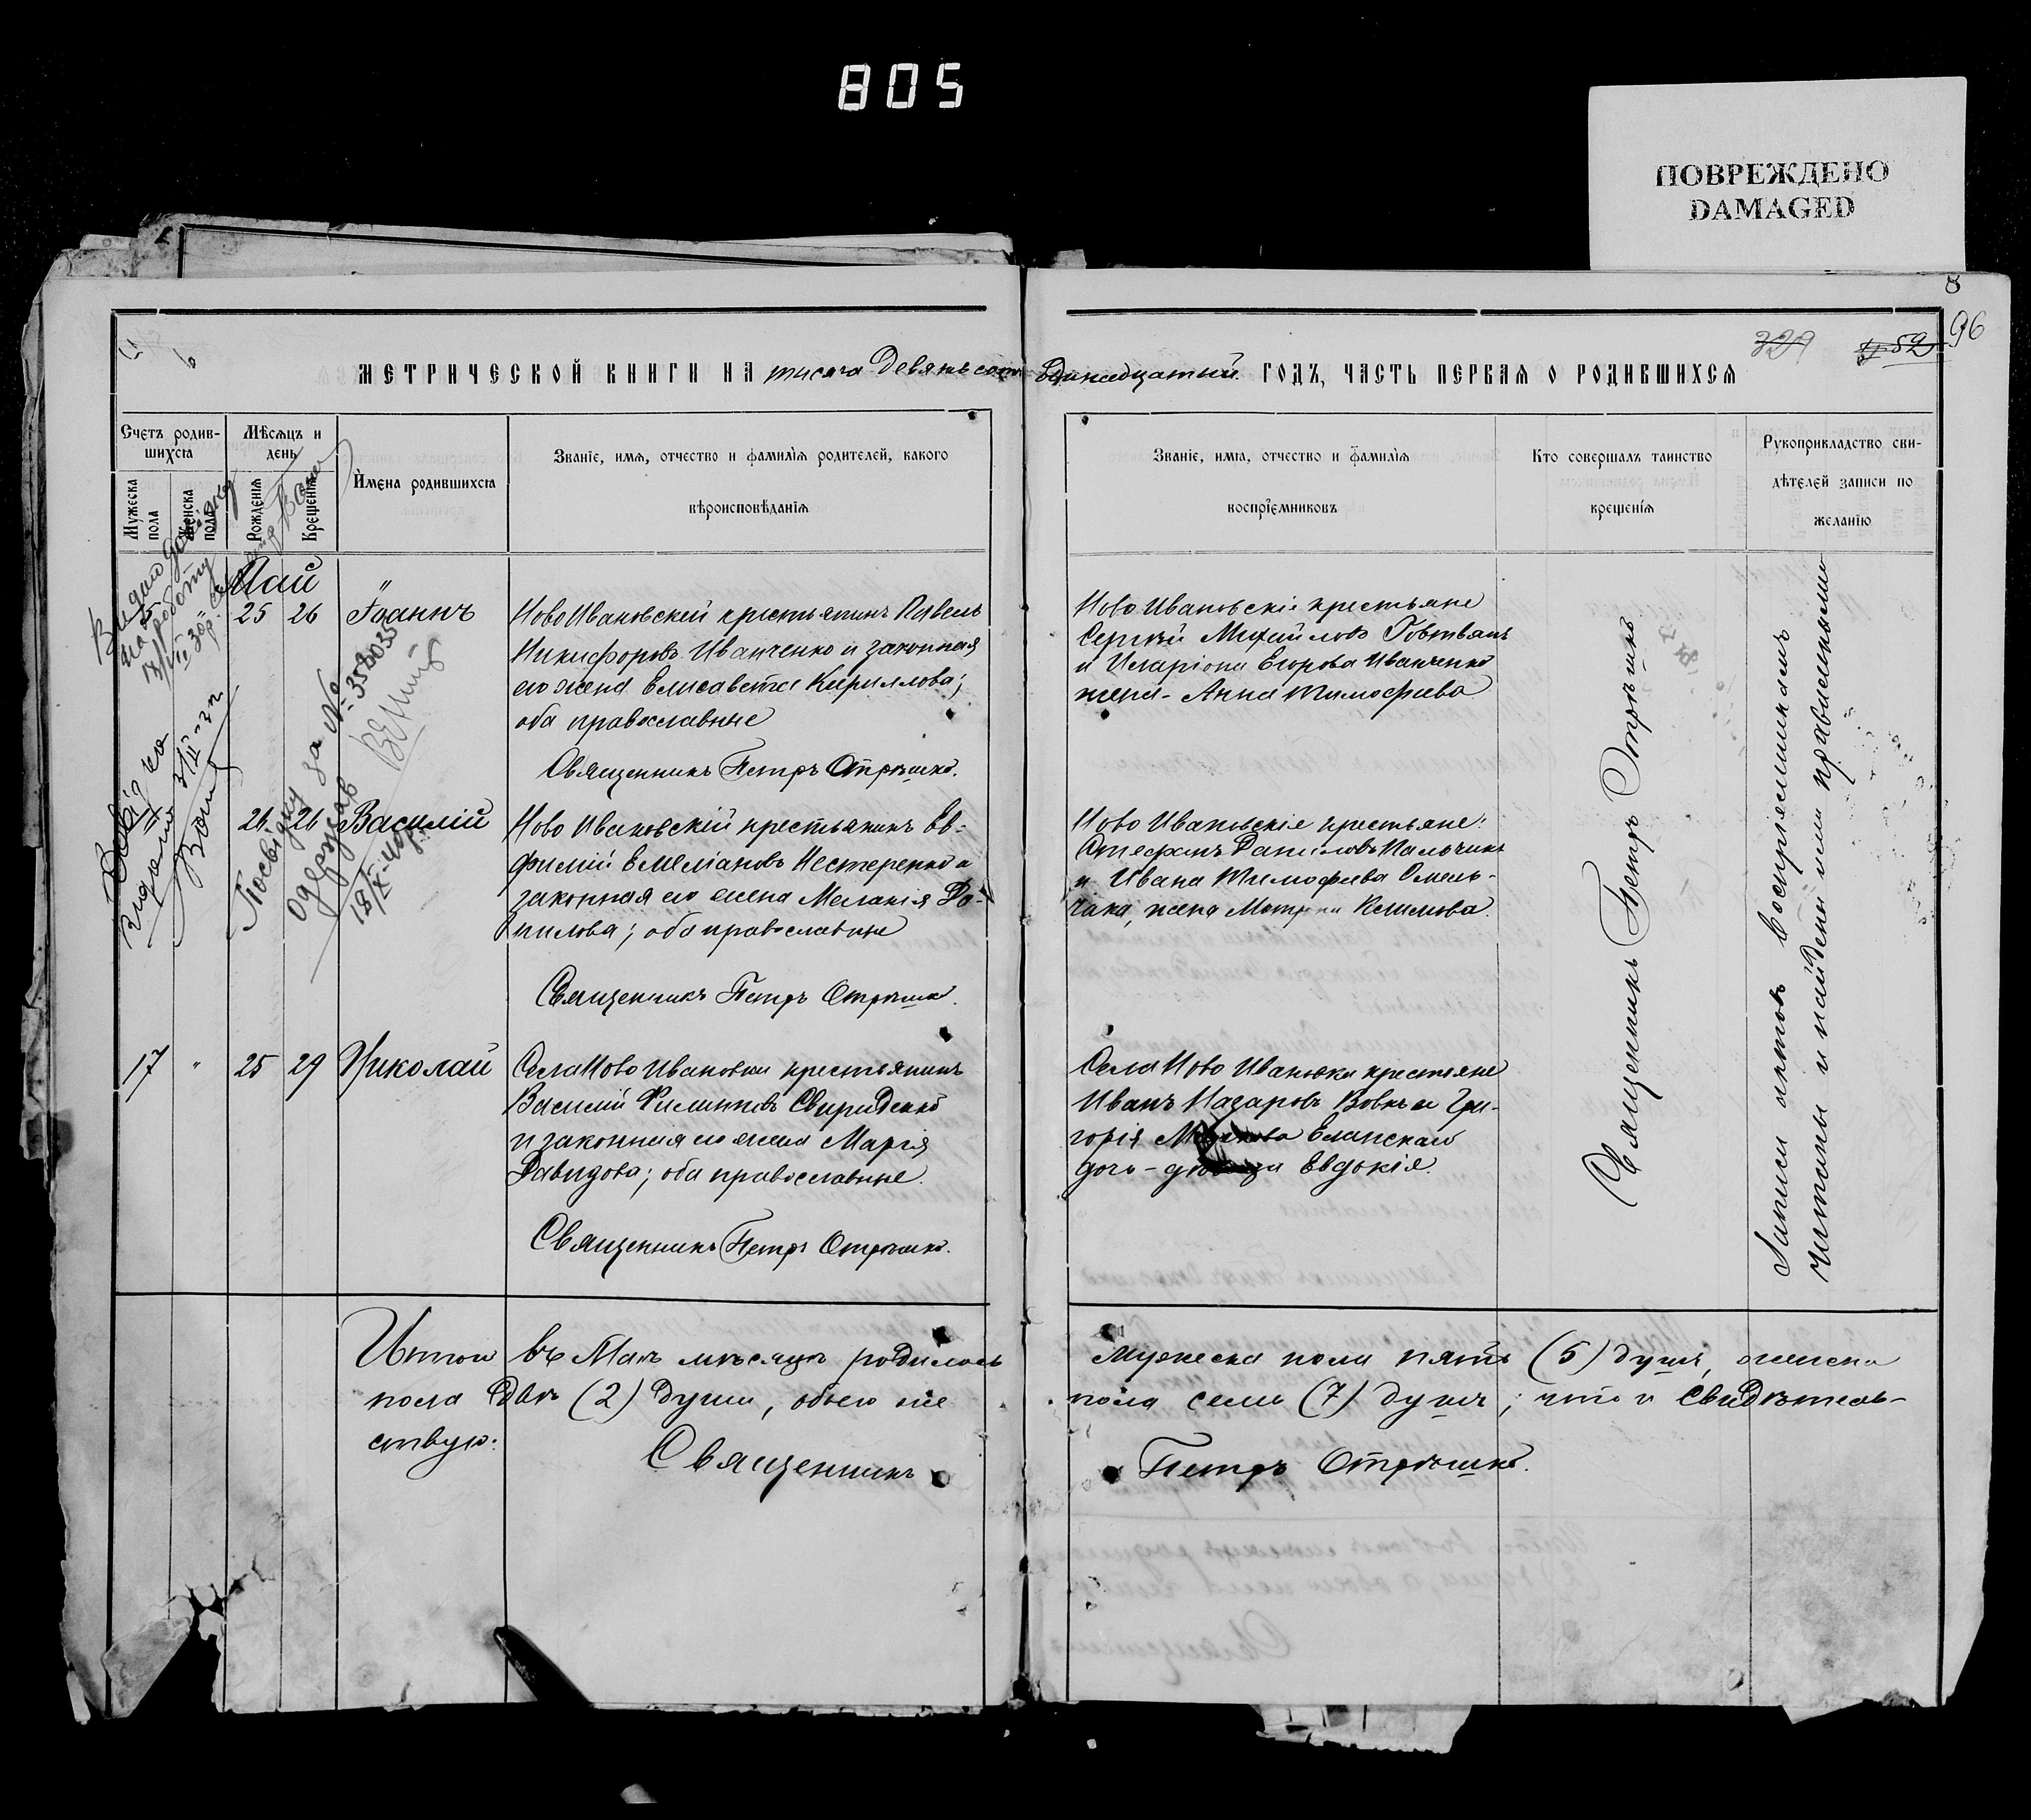 805
ПОВРЕЖДЕНО
DAMAGED
8
96
329
МЕТРИЧЕСКОЙ КНИГИ НА тысяча девятьсот одинадцатый ГОДЪ, ЧАСТЬ ПЕРВАЯ О РОДИВШИХСЯ
Счетъ родив-
шихся
Мужеска пола
Женска пола
Мѣсяцъ и
день
Рожденія
Крещенія
Имена родившихся
Званіе, имя, отчество и фамилія родителей, какого
вѣроисповѣданія
Званіе, имя, отчество и фамилія
воспріемниковъ
Кто совершалъ таинство
крещенія
Рукоприкладство сви-
дѣтелей записи по
желанію
Май
25 26 Іоаннъ
Ново Ивановскій крестьянинъ Павелъ
Никифоровъ Иванченко и законная
его жена Елисавета Кириллова;
оба православные
Священникъ Петръ
Ново Ивановскіе крестьяне
Сергѣй Михайловъ
и Иларіона Егорова Иванченко
жена - Анна Тимофеева
26 26 Василій
Ново Ивановскій крестьянинъ Ев-
фимій Емеліановъ Нестеренко и
законная его жена Меланія Да-
нилова; оба православные
Священникъ Петръ
Ново Ивановскіе крестьяне:
Стефанъ Даниловъ Пальчикъ
и Ивана Тимофеева Омель-
чака, жена Климова.
17 " 25 29 Николай
Села Ново Ивановки крестьянинъ
Василій Филиповъ Свириденко
и законная его жена Марія
Давидова; оба православные.
Священникъ Петръ
Села Ново Ивановки крестяне
Иванъ Назаровъ Вовкъ и Гри-
горія Еланскаго
дочь - Евдокія.
Священникъ Петръ
Записи актовъ воспріемникамъ
читаны и найдены ими правильными
Посвідку за № 358035
одержав
Итого въ Маѣ мѣсяцѣ родилось мужеска пола пять (5) душъ, женска
пола двѣ (2) души, обоего же пола семь (7) душъ; что и свидѣтель-
ствую:
Священникъ Петръ